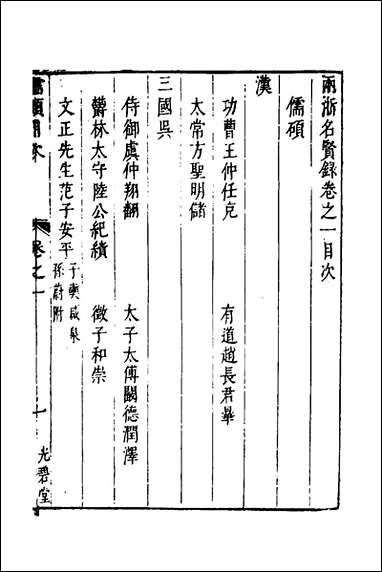 兩浙名賢錄卷之一目次
儒碩
漢
功曹王仲任充
有道趙長君曅
太常方聖明儲
三國吳
侍御虞仲翔翻
太子太傅闞德潤澤
欝林太守陸公紀績
徵子和崇
文正先生范子安平
子奭咸泉
孫蔚附
卷之一
一
光碧堂